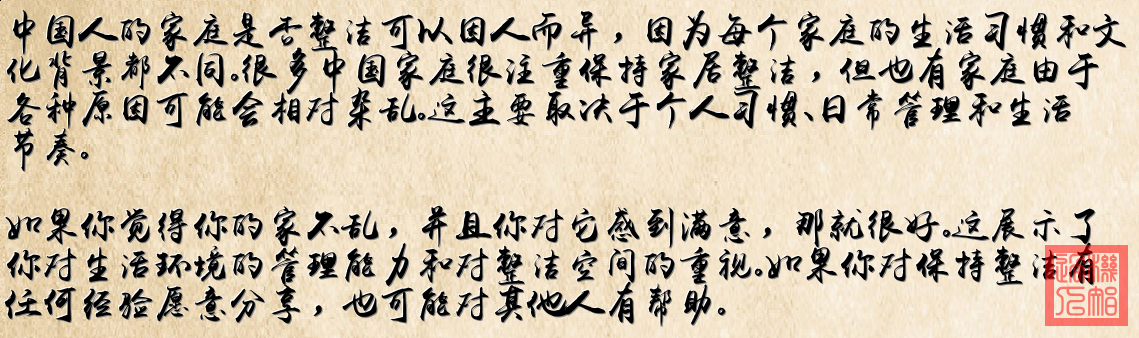 中国人的家庭是否整洁可以因人而异，因为每个家庭的生活习惯和文
化背景都不同。很多中国家庭很注重保持家居整洁，但也有家庭由于
各种原因可能会相对杂乱。这主要取决于个人习惯、日常管理和生活
节奏。
如果你觉得你的家不乱，并且你对它感到满意，那就很好。这展示了
你对生活环境的管理能力和对整洁空间的重视。如果你对保持整洁有
任何经验愿意分享，也可能对其他人有帮助。